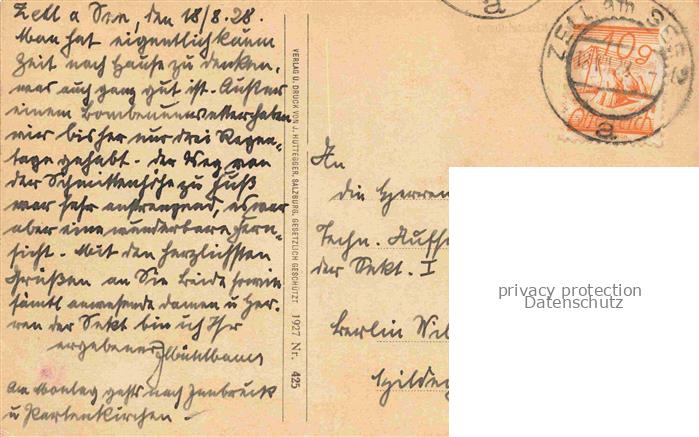 Zell a See, den 18/8.28.
Man hat eigentlich kaum
Zeit nach Hause zu denken,
was auch ganz gut ist. Außer
einem Bombenunwetter haben
wir bisher nur drei Regen-
tage gehabt. Der Weg von
der Schmittenhöhe zu Fuß
war sehr anstrengend, es war
aber eine wunderbare Fern-
sicht. Mit den herzlichsten
Grüßen an Sie beide sowie
sämtl anwesende Damen u Her-
ren der Sekt bin ich Ihr
ergebener
Am Montag gehts nach Innbruck
u Partenkirchen -
VERLAG U. DRUCK VON J. HUTTEGGER, SALZBURG. GESETZLICH GESCHÜTZT 1927 Nr. 425
ZELL am SEE 2
a
40g
Österreich
An
die Herren
Techn. Aufs
der Sekt. I
Berlin Wil
Hilde
privacy protection
Datenschutz